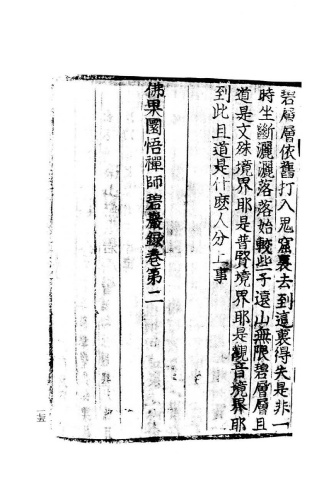 碧層層依舊打入鬼窟裏去到這裏得失是非一
時坐斷灑灑落落始較些子還山無限碧層層且
道是文殊境界耶是普賢境界耶是觀音境界耶
到此且道是什麽人分上事
佛果圜悟禪師碧巖錄卷第二